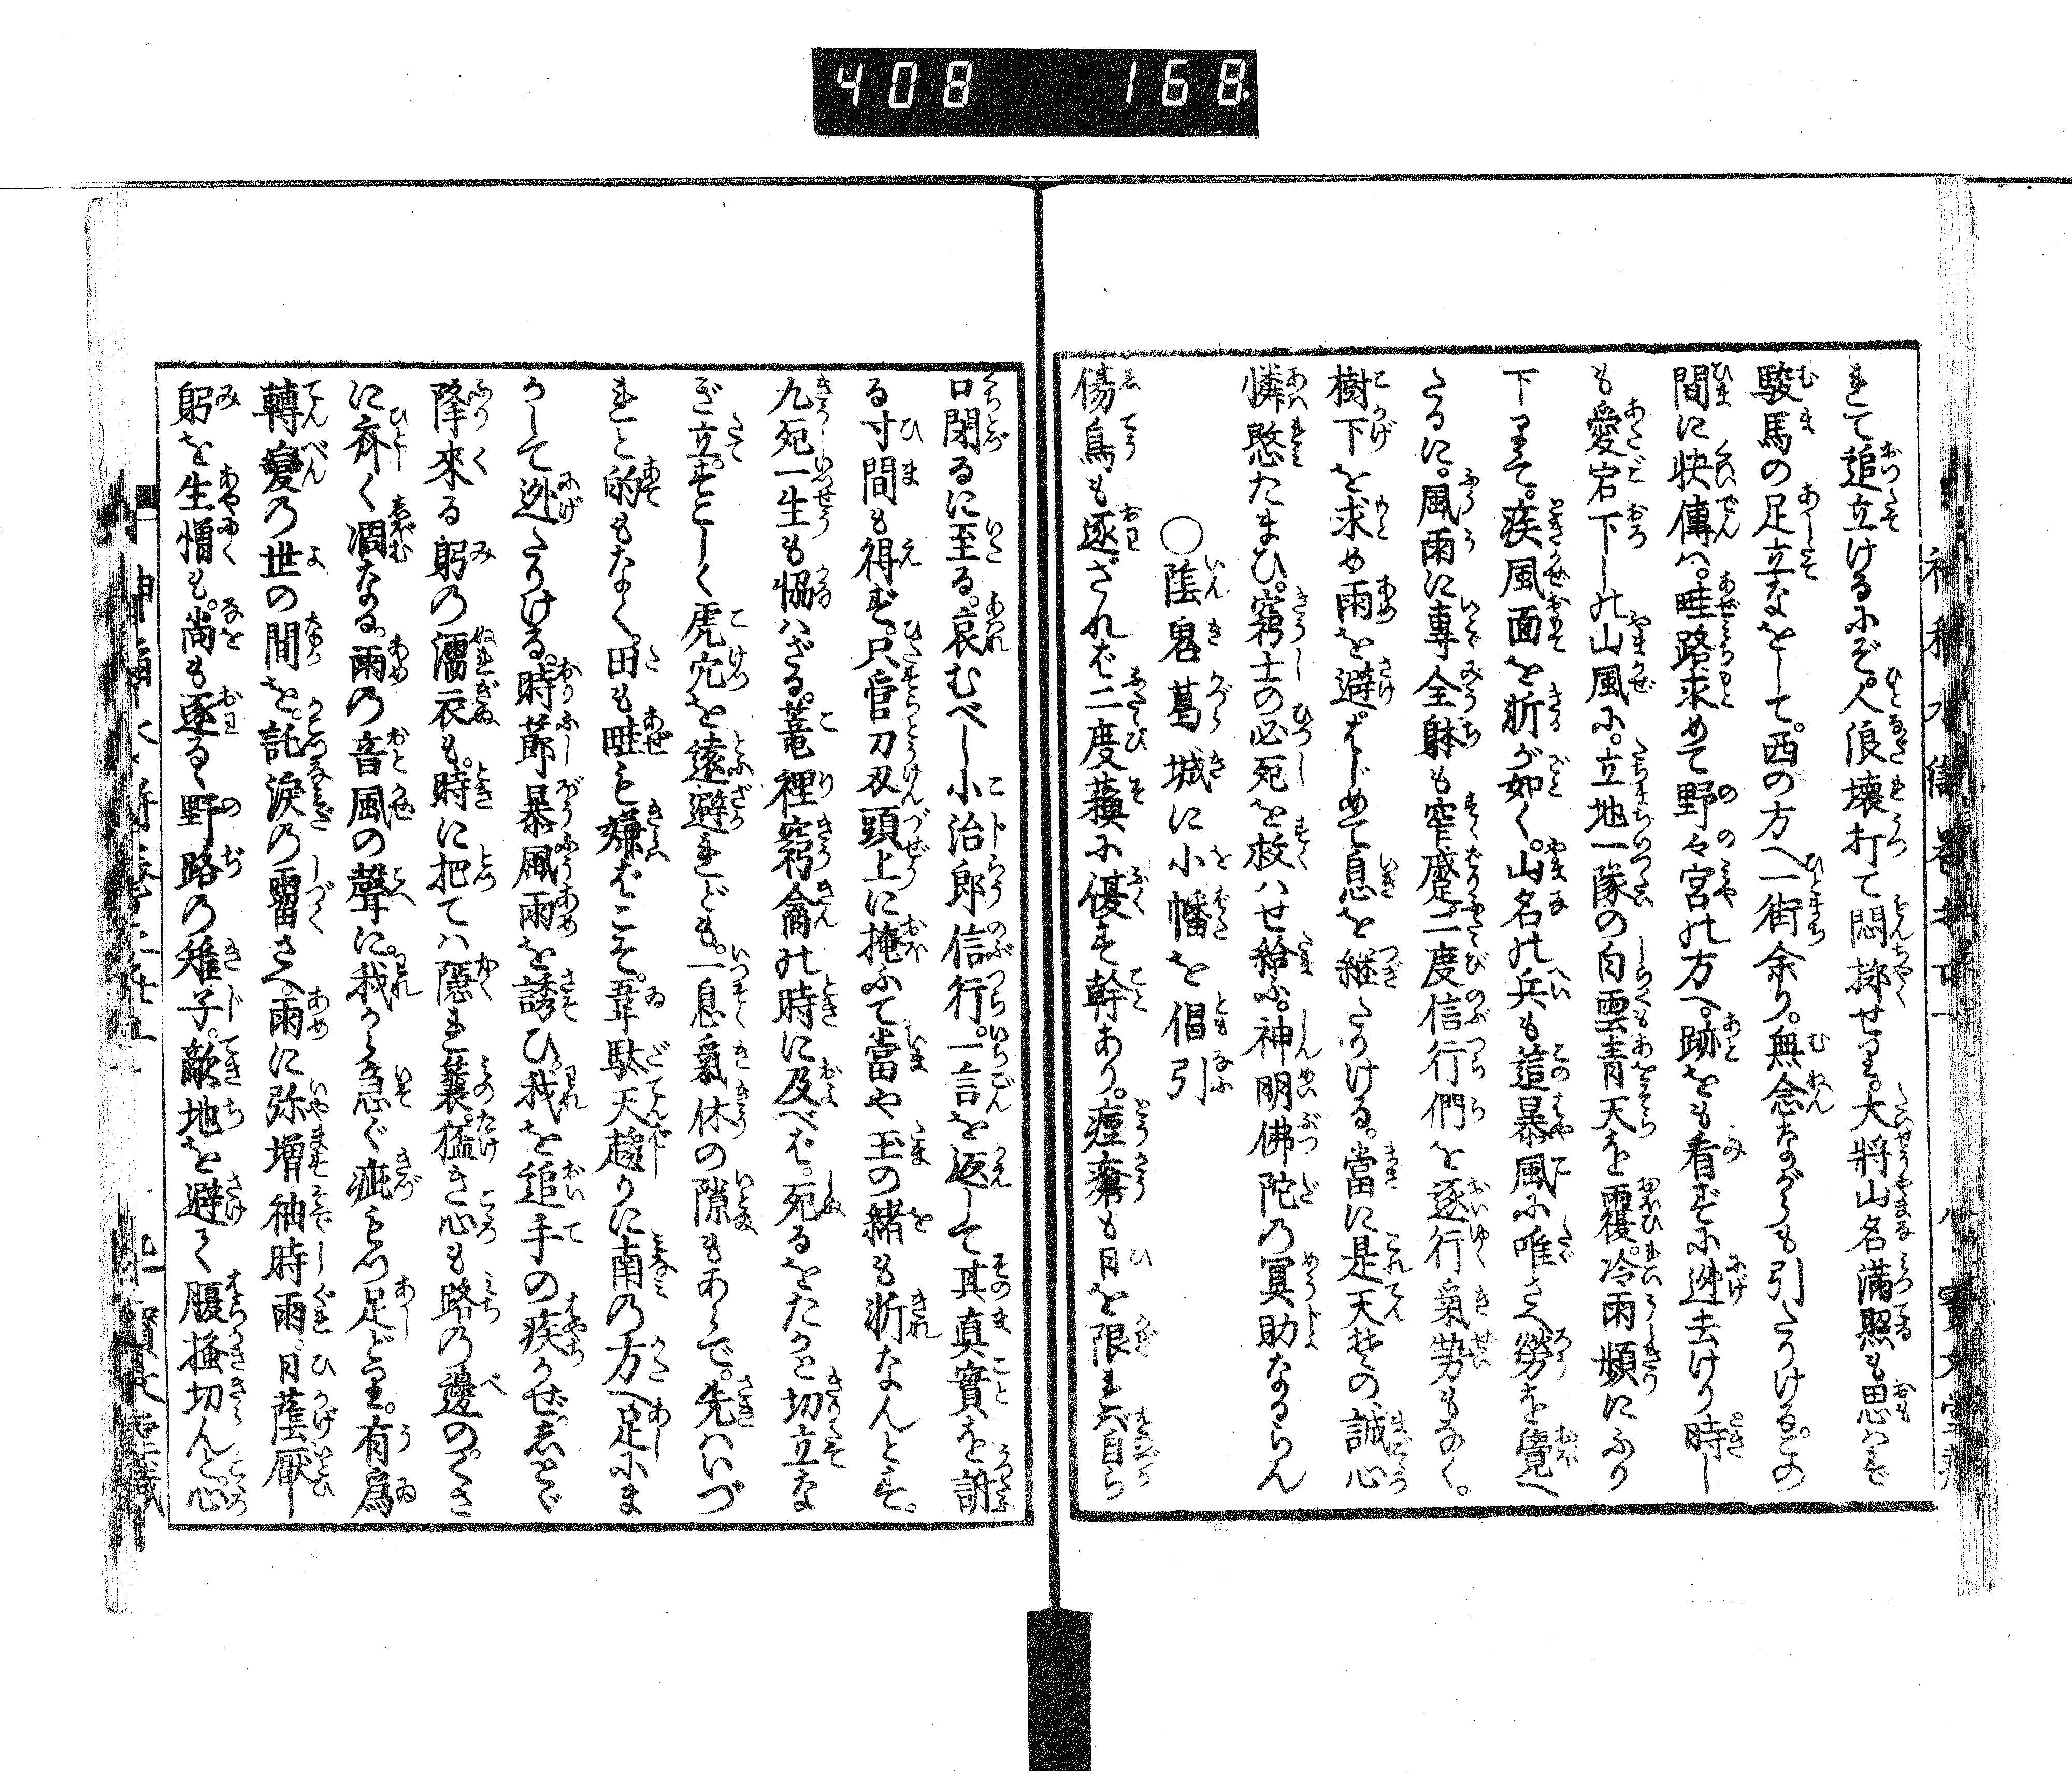 408 168
れて追立けるにぞ。人浪壊打て悶擲せり。大将山名満照も思はず
駿馬の足立なをして。西の方へ一街余り。無念ながらも引たりける。この
間に快傳は。畦路求めて野々宮の方へ。跡をも看ずに迯去けり時し
も愛宕下しの山風に。立地一隊の白雲青天を覆。冷雨頻にふり
下りて。疾風面を斫が如く。山名の兵も這暴風に唯さへ労を覚へ
たるに。風雨に専全躰も窄蹙。二度信行們を逐行氣勢もなく。
樹下を求め雨を避。はじめて息を継たりける。當に是天その誠心
憐愍たまひ。窮士の必死を救はせ給ふ。神明佛陀の冥助なるらん
○蔭鬼葛城に小幡を倡引
傷鳥も逐ざれば二度蘓に優す幹あり。痘瘡も日を限れば自ら
口閉るに至る。哀むべし小治郎信行。一言を返して其真實を謝
る寸間も得ず。只管刀刄頭上に掩ふて當や玉の緒も断なんとす。
九死一生も恊はざる。菴裡窮禽の時に及べば。死るをたりと切立な
ぎ立。すこしく虎穴を遠避れども。一息氣休の隙もあらで。先はいづ
れと的もなく。田も畦も嫌ばこそ。韋駄天趨りに南の方へ足にま
かして迯たりける。時節暴風雨を誘ひ。我を追手の疾かぜ。志とゞ
降來る躬の濡衣も。時に把ては隠れ蓑。猛き心も路の邊のくさ
に齊く凋なる。雨の音風の聲に。我から急ぐ疵もつ足どり。有為
轉變の世の間を。託涙の霤さへ。雨に弥増袖時雨。日蔭厭し
躬を生憎も。尚も逐るゝ野路の雉子。敵地を避て腹掻切んと。心